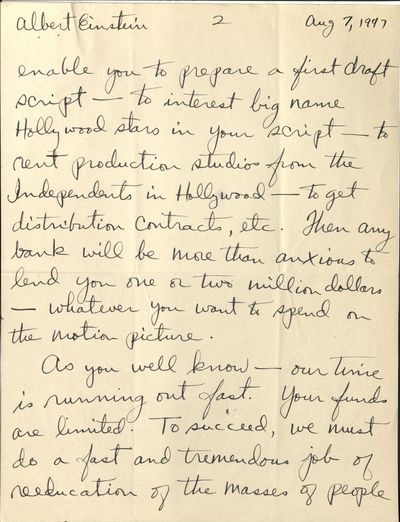 Albert Einstein 2 Aug 7, 1947
enable you to prepare a first draft
script — to interest big name
Hollywood stars in your script — to
rent production studios from the
Independents in Hollywood — to get
distribution contracts, etc. Then any
bank will be more than anxious to
lend you one or two million dollars
— whatever you want to spend on
the motion picture.
As you well know — our time
is running out fast. Your funds
are limited. To succeed, we must
do a fast and tremendous job of
reeducation of the masses of people